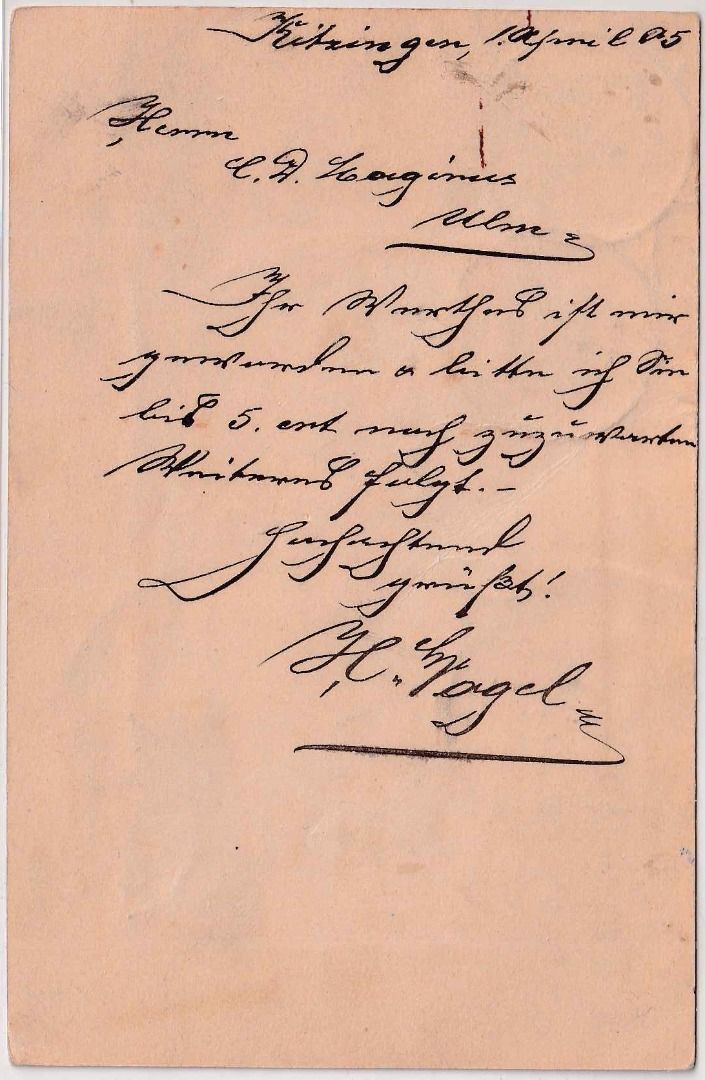 Kitzingen, 1. April 85
Herrn
C. D. Magirus
Ulm
Ihr Werthes ist mir
geworden & bitte ich Sie
bis 5. crt noch zuzuwarten
Weiteres folgt. –
Hochachtend
grüßt!
H. Vogel